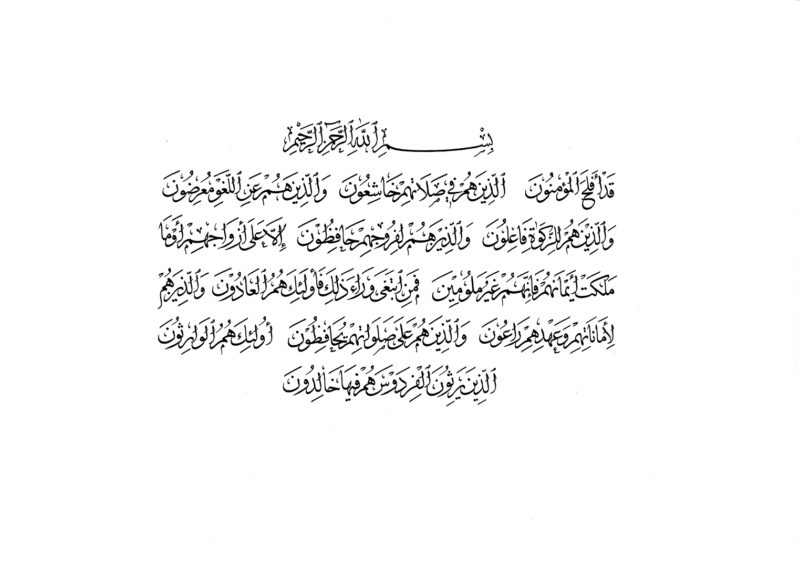 بِسْمِ ٱللَّهِ ٱلرَّحْمٰنِ ٱلرَّحِيْمِ
قَدْ أَفْلَحَ الْمُؤْمِنُونَ الَّذِينَ هُمْ فِي صَلَاتِهِمْ خَاشِعُونَ وَالَّذِينَ هُمْ عَنِ اللَّغْوِ مُعْرِضُونَ
وَالَّذِينَ هُمْ لِلزَّكَوٰةِ فَاعِلُونَ وَالَّذِينَ هُمْ لِفُرُوجِهِمْ حَافِظُوْنَ إِلَّا عَلَى أَزْوَاجِهِمْ أَوْ مَا
مَلَكَتْ أَيْمَانُهُمْ فَإِنَّهُمْ غَيْرُ مَلُوْمِينَ فَمَنِ ابْتَغَى وَرَاءَ ذٰلِكَ فَأُولَئِكَ هُمُ الْعَادُوْنَ وَالَّذِينَ هُمْ
لِأَمَانَاتِهِمْ وَعَهْدِهِمْ رَاعُونَ وَالَّذِينَ هُمْ عَلَى صَلَوَاتِهِمْ يُحَافِظُوْنَ أُولَئِكَ هُمُ الْوَارِثُونَ
الَّذِينَ يَرِثُونَ الْفِرْدَوْسَ هُمْ فِيهَا خَالِدُونَ